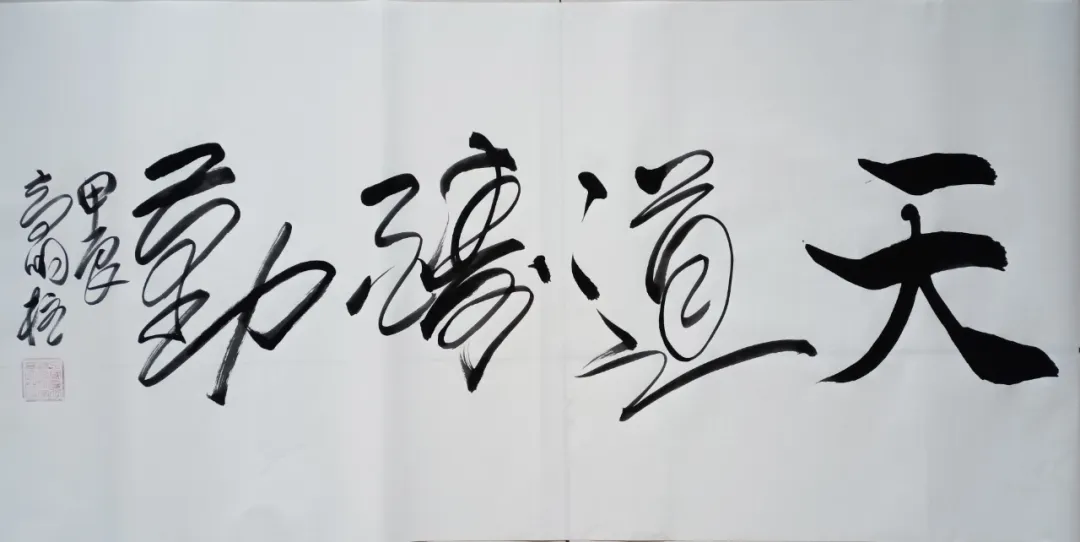 天道酬勤
甲辰
高明柱